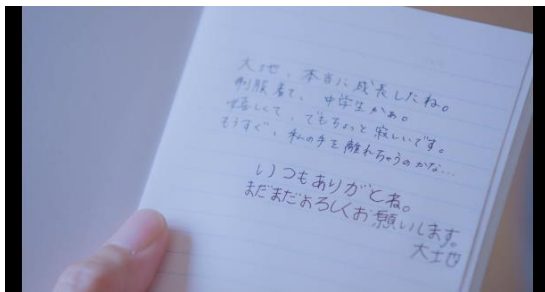 大地、本当に成長したね。
制服着て、中学生かぁ。
嬉しくて、でもちょっと寂しいです。
もうすぐ、私の手を離れちゃうのかな…
いつもありがとね。
まだまだよろしくお願いします。
大地